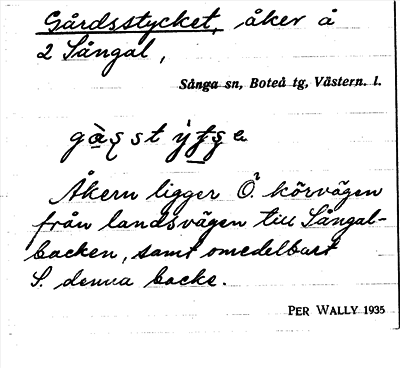 Gårdsstycket, åker å
2 Sångal,
Sånga sn, Boteå tg, Västern. l.
Åkern ligger Ö. körvägen
från landsvägen till Sångal-
backen, samt omedelbart
S. denna backe.
PER WALLY 1935